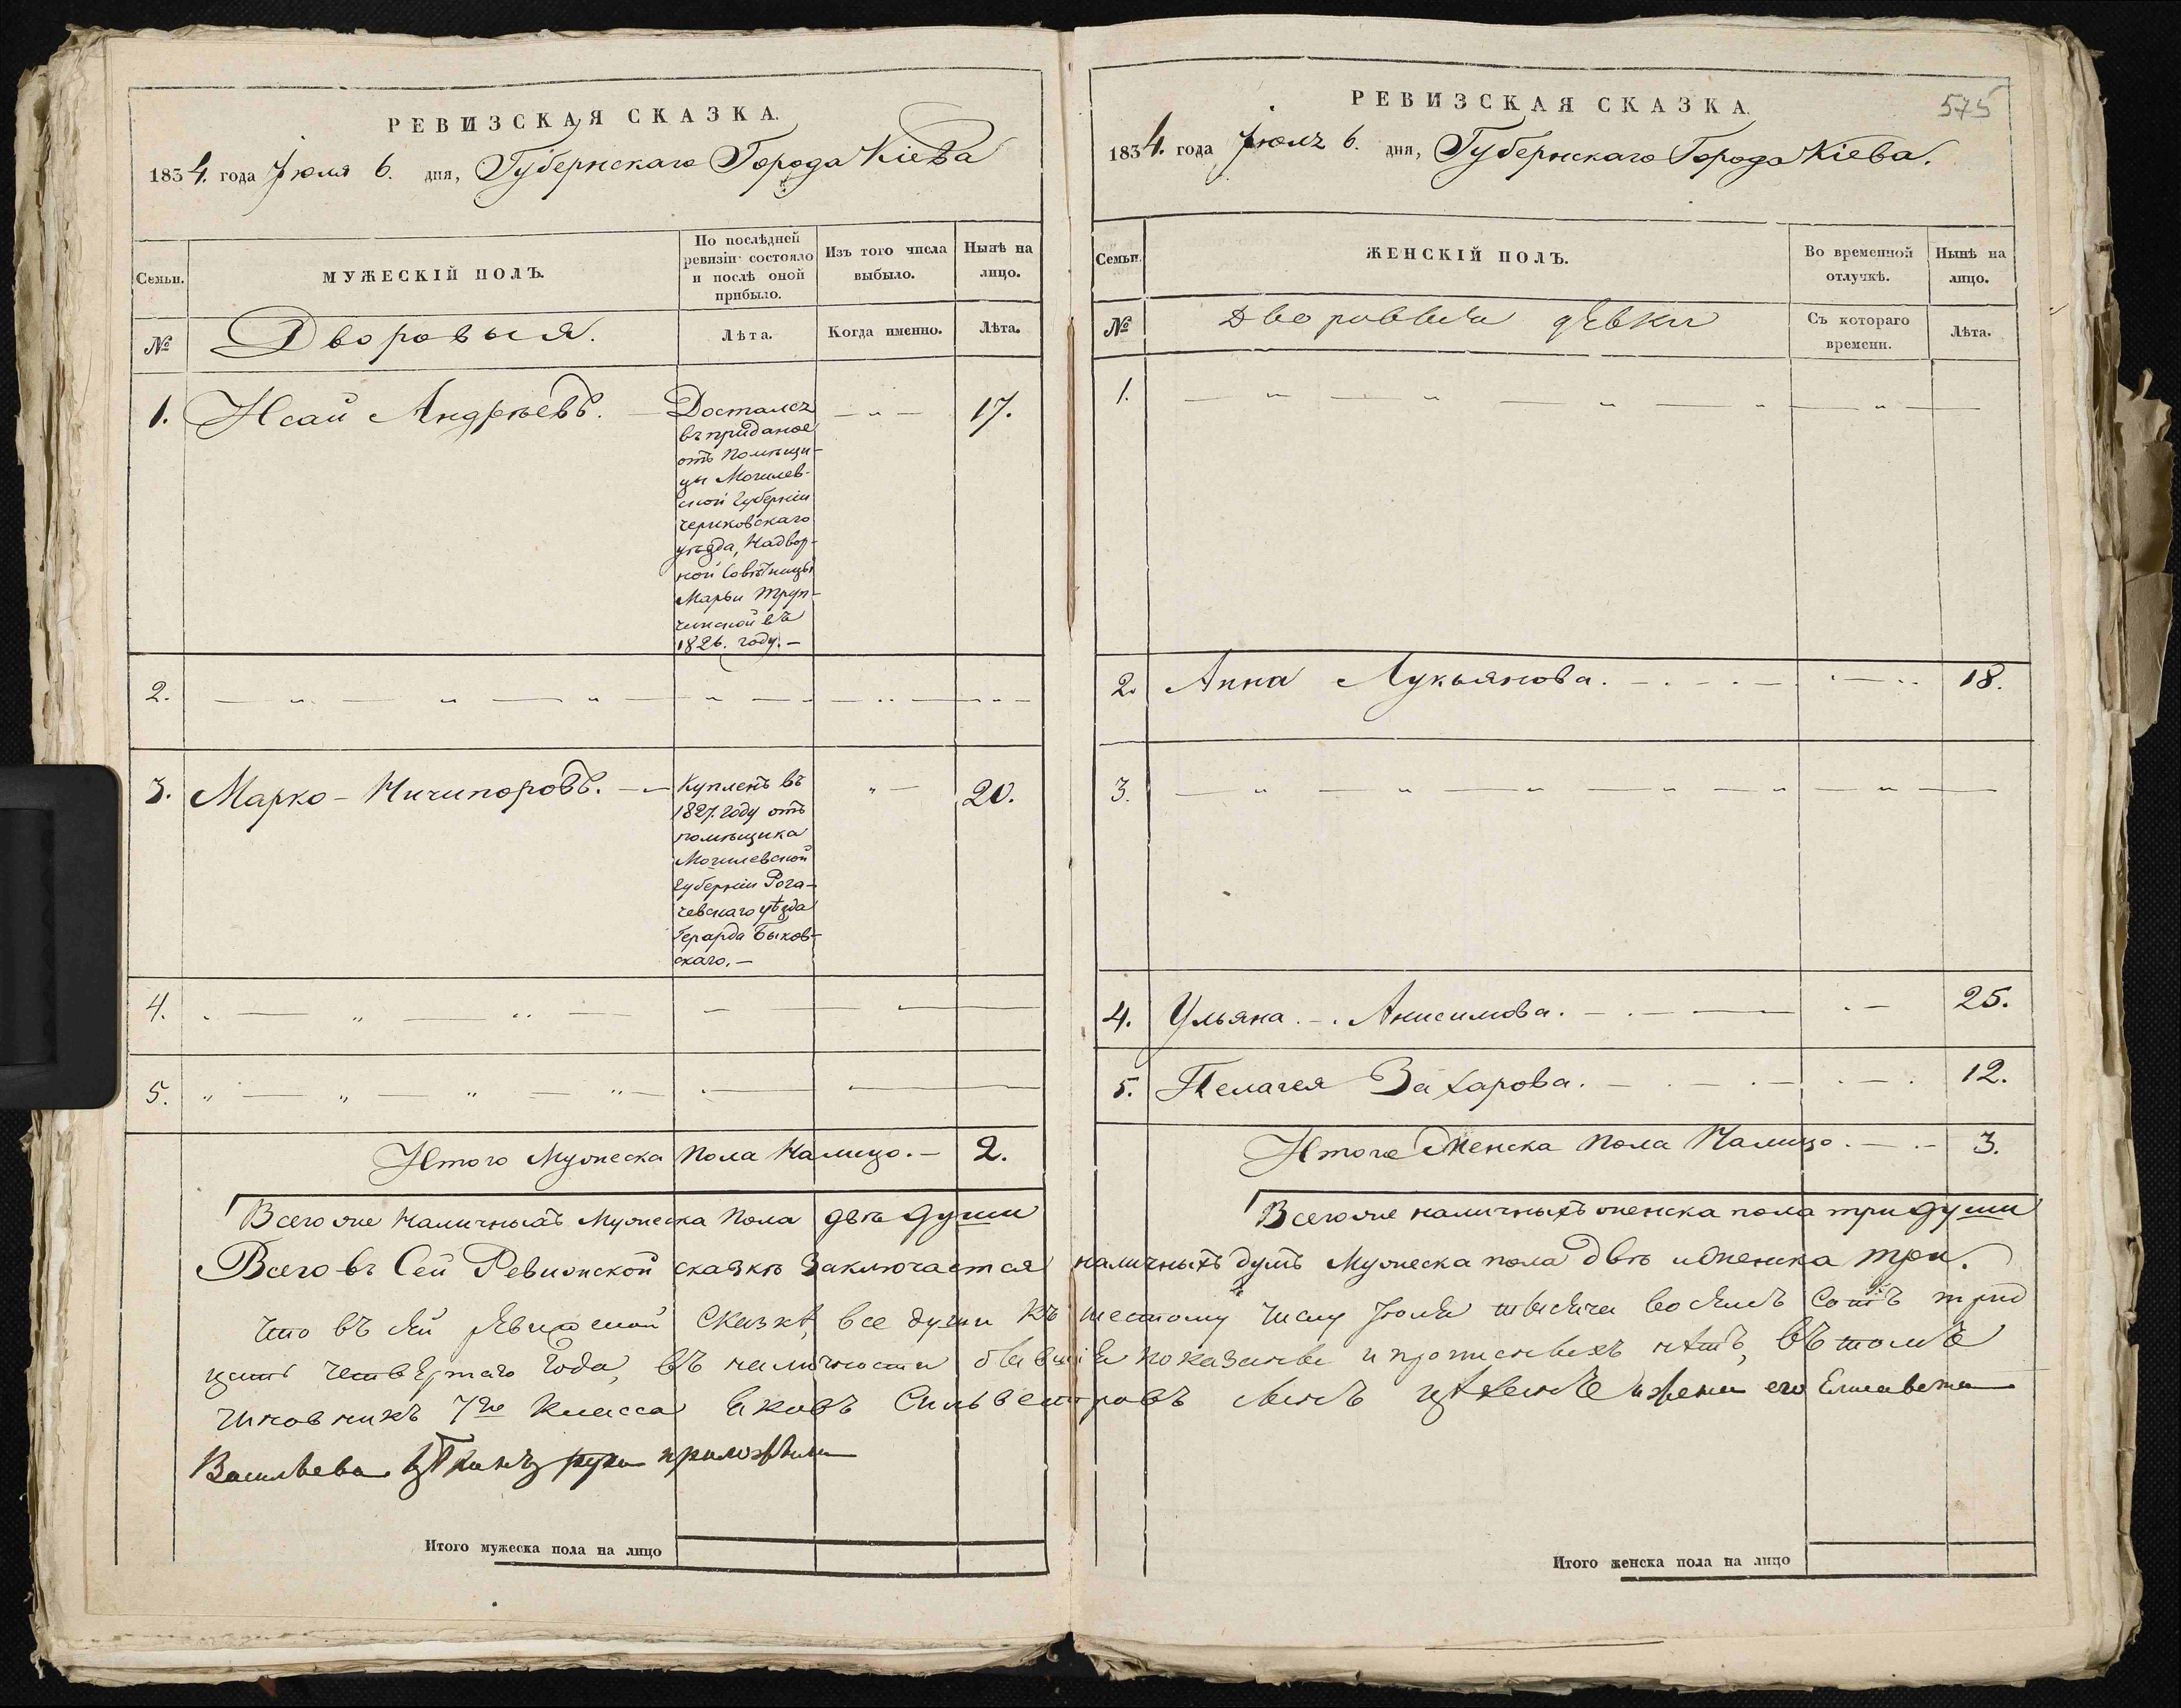 РЕВИЗСКАЯ СКАЗКА.
1834. года Іюля 6. дня, Губернскаго Города Кіева
Семьи.
МУЖЕСКІЙ ПОЛЪ.
По послѣдней
ревизіи состояло
и послѣ оной
прибыло.
Изъ того числа
выбыло.
Нынѣ на
лицо.
№
Дворовыя.
Лѣта.
Когда именно.
Лѣта.
1. Исай Андреевъ. 17.
Достался
въ приданое
отъ помѣщи-
цы Могилев-
ской Губерніи
чериковскаго
уѣзда, Надвор-
ной Совѣтницы
Марьи
въ
1826. году.
2.
3. Марко Ничипоровъ. 20.
Купленъ въ
1827. году отъ
помѣщика
Могилевской
Губерніи Рога-
чевскаго уѣзда
Герарда Быков-
скаго.
4.
5.
Итого Мужеска пола Налицо. 2.
Всего же Наличныхъ Мужеска пола двѣ души
РЕВИЗСКАЯ СКАЗКА.
575
1834. года Іюля 6. дня, Губернскаго Города Кіева.
Семьи.
ЖЕНСКІЙ ПОЛЪ.
Во временной
отлучкѣ.
Нынѣ на
лицо.
№
дѣвки
Съ котораго
времени.
Лѣта.
1.
2. Анна Лукьянова. 18.
3.
4. Ульяна Анисимова. 25.
5. Пелагея Захарова. 12.
Итого Женска Пола Налицо. 3.
Всего же наличныхъ женска пола три души
Всего въ Сей Ревизской сказкѣ Заключается наличныхъ душъ Мужеска пола двѣ и Женска три.
что въ сей сказкѣ все души къ шестому числу Іюля тысяча восемь сотъ трид
цать четвертаго Года, въ наличности показаны и прописныхъ нѣтъ, въ томъ
чиновникъ 7го класса Яковъ Сильвестровъ сынъ и жена его Елисавета
Васильева руки приложили
Итого мужеска пола на лицо
Итого женска пола на лицо